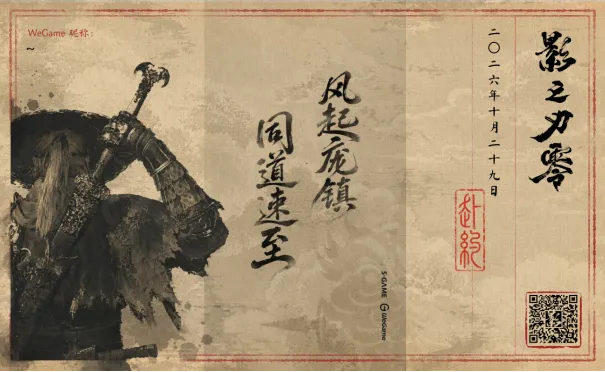 影之刃零
二〇二六年十月二十九日
赴約
风起庞镇
同道速至
S-GAME WeGame
WeGame 昵称:
~